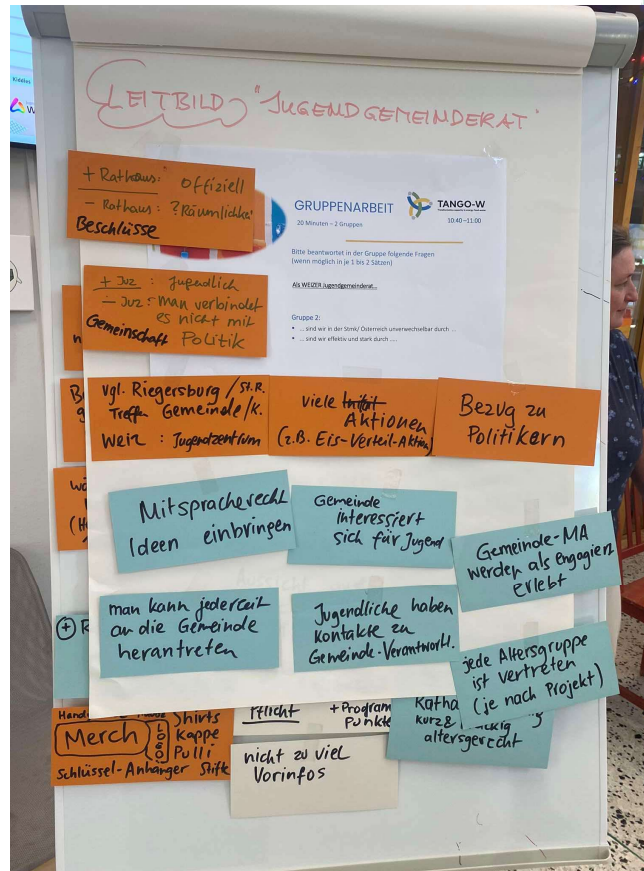 LEITBILD "JUGENDGEMEINDERAT"
+ Rathaus: Offiziell
- Rathaus: ?Räumlichkei
Beschlüsse
GRUPPENARBEIT
TANGO-W
20 Minuten – 2 Gruppen
10:40 –11:00
Bitte beantwortet in der Gruppe folgende Fragen
(wenn möglich in je 1 bis 2 Sätzen)
Als WEIZER Jugendgemeinderat...
Gruppe 2:
• ... sind wir in der Stmk/ Österreich unverwechselbar durch ...
• ... sind wir effektiv und stark durch .....
+ Juz : Jugendlich
- Juz : man verbindet
es nicht mit
Gemeinschaft Politik
vgl. Riegersburg / St.R.
Treffen Gemeinde / K.
Weiz : Jugendzentrum
viele
Aktionen
(z.B. Eis-Verteil-Aktion)
Bezug zu
Politikern
Mitspracherecht
Ideen einbringen
Gemeinde
interessiert
sich für Jugend
Gemeinde-MA
werden als engagiert
erlebt
man kann jederzeit
an die Gemeinde
herantreten
Jugendliche haben
Kontakte zu
Gemeinde-Verantwortl.
jede Altersgruppe
ist vertreten
(je nach Projekt)
Merch
LOGO
Shirts
Kappe
Pulli
Schlüssel-Anhänger Stifte
Pflicht
+ Program
Punkte
nicht zu viel
Vorinfos
Ratha
kurz &
altersgerecht